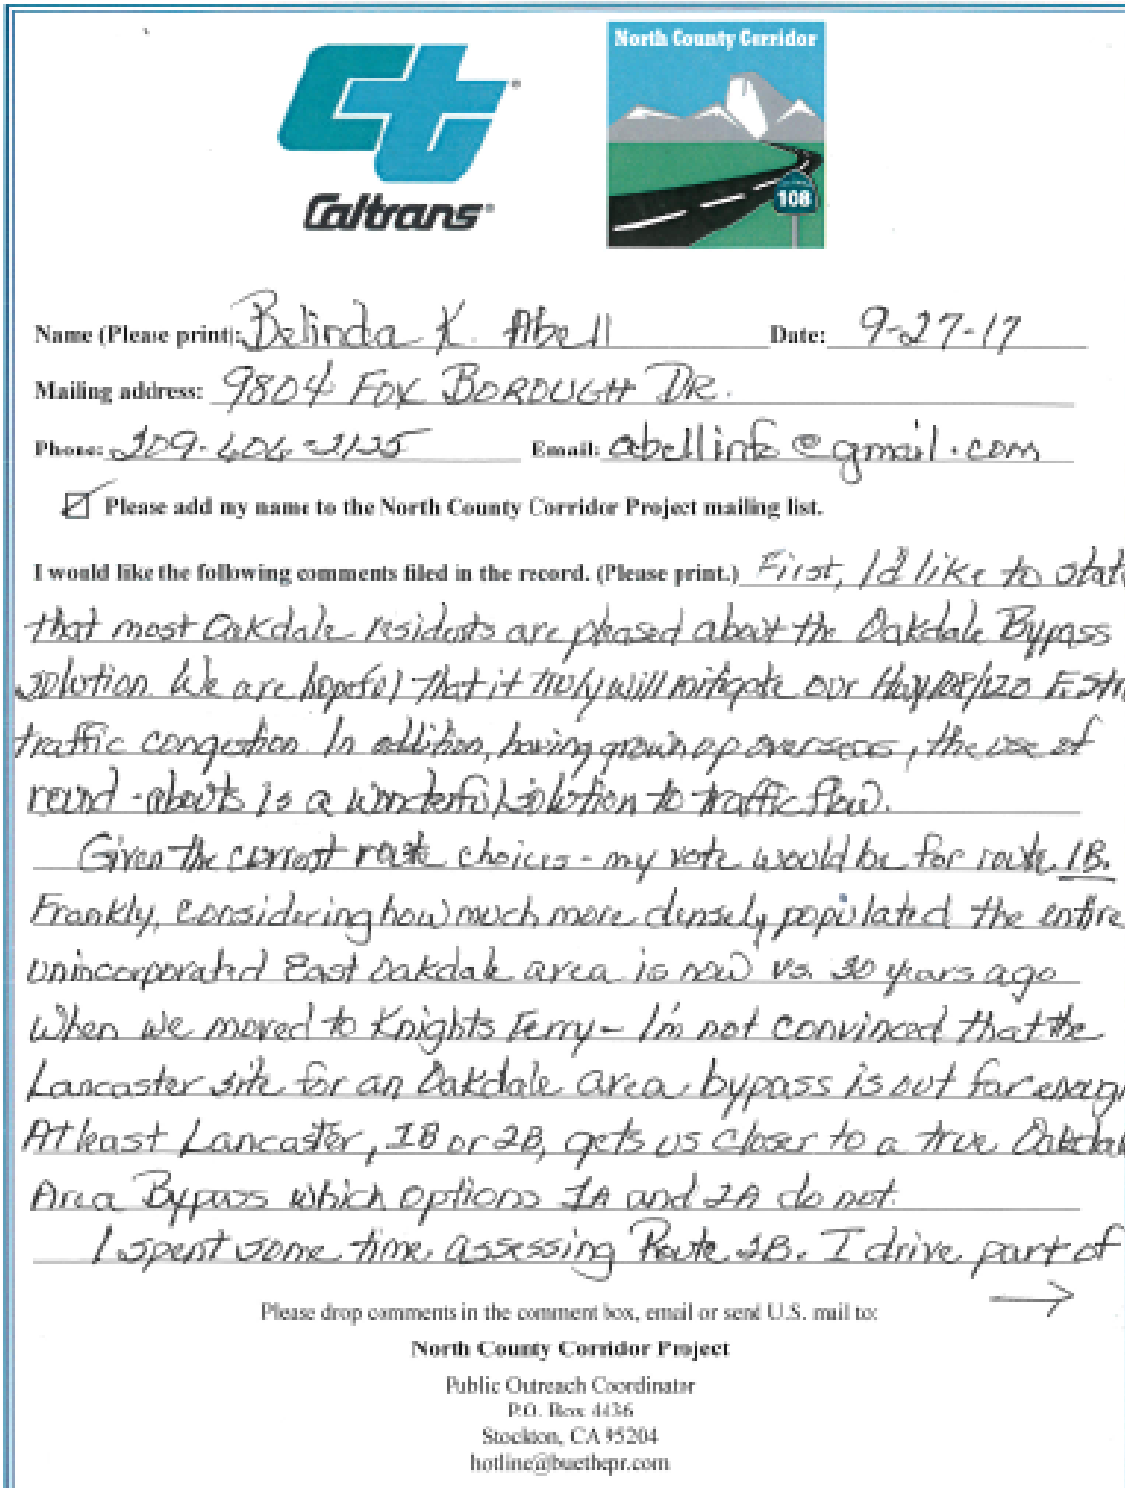 North County Corridor
Ct
Caltrans
108
Name (Please print): Belinda K. Abell Date: 9-27-17
Mailing address: 9804 FOX BOROUGH DR.
Phone: 209- Email: abellinfo@gmail.com
Please add my name to the North County Corridor Project mailing list.
I would like the following comments filed in the record. (Please print.) First, I'd like to stat
that most Oakdale residents are pleased about the Oakdale Bypass
solution. We are hopeful that it truly will mitigate our Hwy 108/120 F. Str
traffic congestion. In addition, having grown up overseas, the use of
round-abouts is a wonderful solution to traffic flow.
Given the current route choices - my vote would be for route 1B.
Frankly, considering how much more densely populated the entire
unincorporated East Oakdale area is now vs. 30 years ago
when we moved to Knights Ferry - I'm not convinced that the
Lancaster site for an Oakdale area bypass is out far enoug
At least Lancaster, 1B or 2B, gets us closer to a true Oakdal
Area Bypass which options 1A and 2A do not.
I spent some time assessing Route I drive part of
→
Please drop comments in the comment box, email or send U.S. mail to:
North County Corridor Project
Public Outreach Coordinator
P.O. Box 4436
Stockton, CA 95204
hotline@buethepr.com